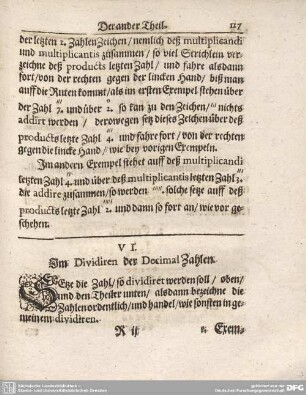 Der ander Theil. 117
der letzten 2. Zahlen Zeichen/ nemlich deß multiplicandi
und multiplicantis zusammen/ so viel Strichlein ver-
zeichne deß products letzten Zahl/ und fahre alsdann
fort/ von der rechten gegen der lincken Hand/ biß man
auff die Ruten kommt/ als im ersten Exempel stehen über
der Zahl 7. und über 2. so kan zu den Zeichen/ nichts
addirt werden / derowegen setz dieses Zeichen über deß
products letzte Zahl 4. und fahre fort/ von der rechten
gegen die lincke Hand/ wie bey vorigen Exempeln.
Im andern Exempel stehet auff deß multiplicandi
letzten Zahl 4. und über deß multiplicantis letzten Zahl 3.
die addire zusammen/ so werden solche setze auff deß
products letzte Zahl 2. und dann so fort an/ wie vor ge-
schehen.
VI.
Im Dividiren der Decimal Zahlen.
SEtze die Zahl/ so dividiret werden soll / oben/
und den Theiler unten/ alsdann bezeichne die
Zahlen ordentlich/ und handel/ wie sonsten in ge-
meinem dividiren.
R ij 1. Exem.